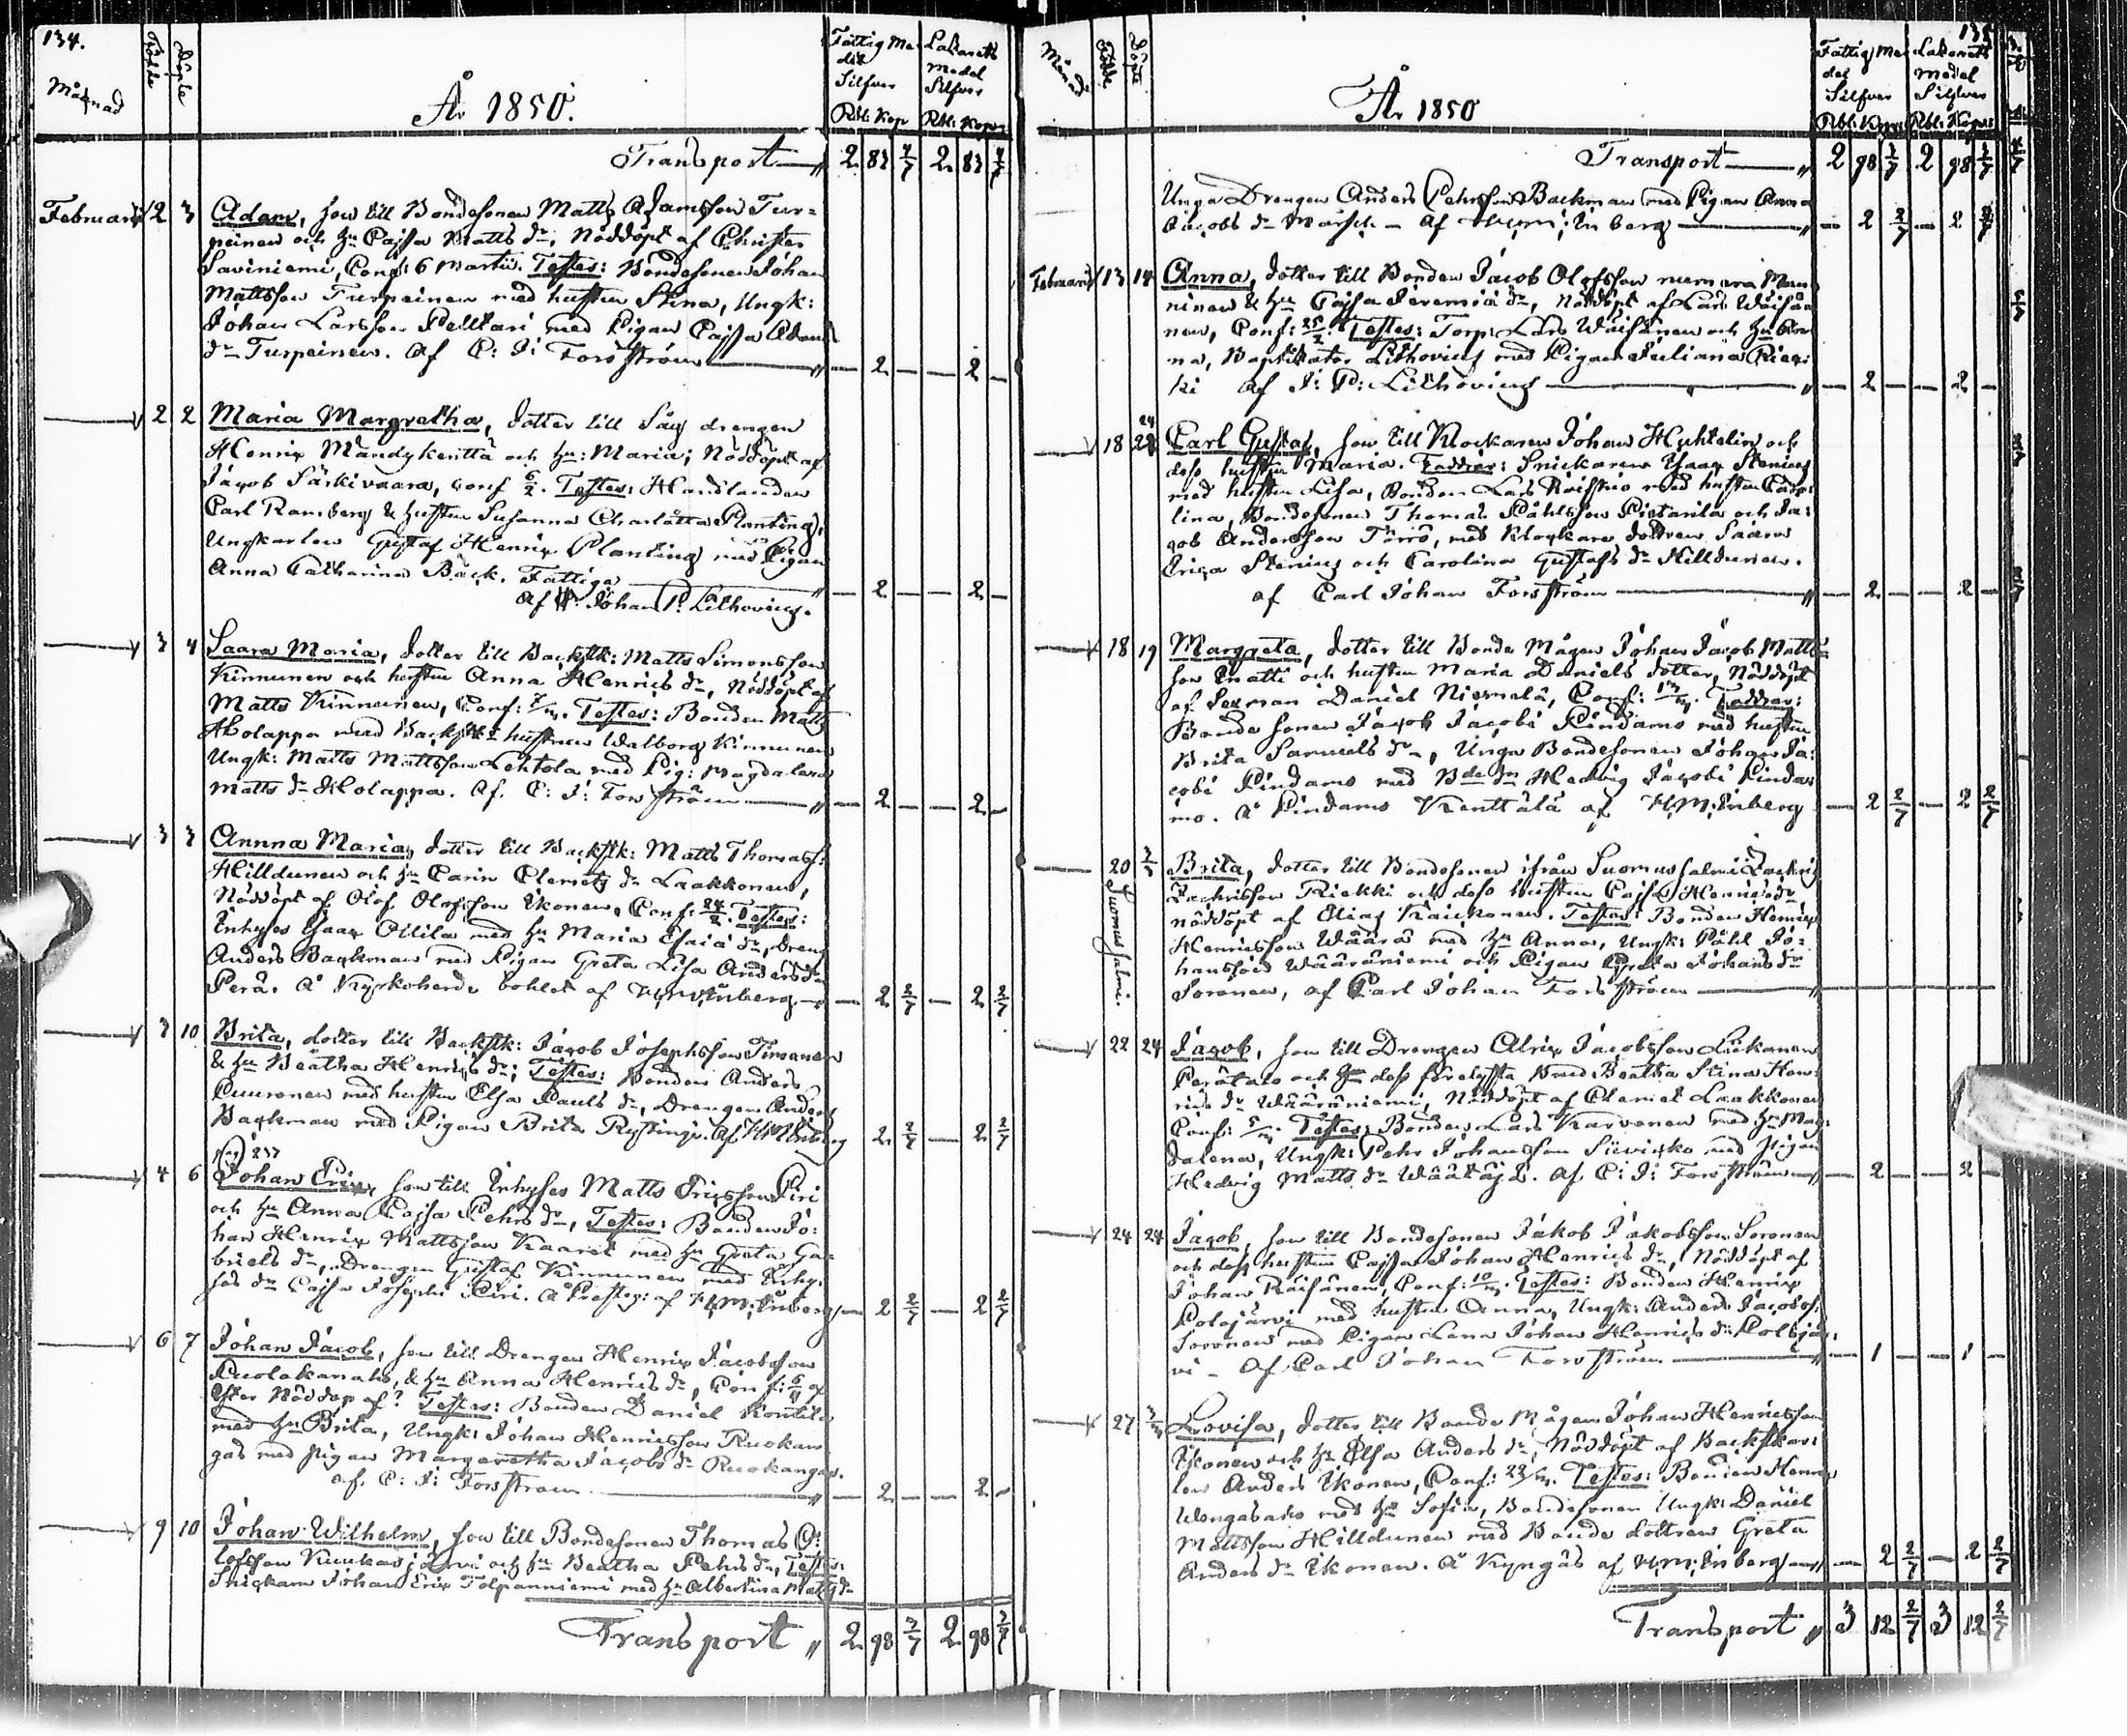 134.
Månad
Födde
Döpte
År 1850.
Fattig Me
del
Silfver
Rbl: Kop
Lazaretts
medel
Silfver
Rbl: Kop
Transport 2 83 4/7 2 83 4/7
Februarii 2 3 Adam, son till Bondesonen Matts Adamsson Tur=
peinen och hu Cajsa Matts dr, Nöddöpt af Christer
Saviniemi, Conf: 6 Martii. Testes: Bondesonen Johan
Mattsson Turpeinen med hustru Stina, Ungk:
Johan Larsson Pelttari med Pigan Cajsa Adams
dr Turpeinen. Af C: J: Forsström — 2 — — 2 —
2 2 Maria Margretha, dotter till Såg drengen
Henrix Mändykenttä och hu: Maria; Nöddöpt af
Jacob Särkivaara, conf 6/2. Testes: Handlanden
Carl Ramsberg & hustru Susanna Charlåtta Planting,
Ungkarlen Gustaf Henrix Planting med Pigan
Anna Catharina Bäck. Fattiga — 2 — — 2 —
Af Johan P. Lithovius.
3 4 Saara Maria, dotter till Backstk: Matts Simonsson
Kinnunen och hustru Anna Henrics dr, Nöddöpt af
Matts Kinnunen, Conf: Testes: Bonden Matts
Holappa med Backstu hustrun Walborg Kinnunen
Ungk: Matts Mattsson Lehtola med Pig: Magdalena
Matts dr Holappa. Af. C: J: Forsström — 2 — — 2 —
3 3 Annna Maria, dotter till Backstk: Matts Thomass:
Hilldunen och hu Carin Clemets dr Laakkonen,
Nöddöpt af Olof Olofsson Ikonen, Conf: 24/2. Testes:
Inhyses Isaac Ollila med hu Maria Esaiæ dr, Dreng
Anders Backman med Pigan Greta Lisa Anders dr
Perä. Å Kyrkoherde bohlet af H:M:Enberg — 2 2/7 — 2 2/7
3 10 Brita, dotter till Backstk: Jacob Josephsson Timonen
& hu Beatha Henrics dr; Testes: Bonden Anders
Puuronen med hustru Elsa Pauls dr, Drengen Anders
Backman med Pigan Brita Rystinge. Af HM Enberg 2 2/7 — 2 2/7
pag 237
4 6 Johan Eric, son till Inhyses Matts Ericsson Piri
och hu Anna Cajsa Pehrs dr, Testes: Bonden Jo:
han Henrix Mattsson Kaaret med hu Greta Ga=
briels dr, Drengen Gustaf Kinnunen med Inhy:
ses dr Cajsa Josephs Piri. Å Presteg: af H:M:Enberg — 2 2/7 — 2 2/7
6 7 Johan Jacob, son till Drengen Henrix Jacobsson
Puolakanaho, & hu Anna Henrics dr, Conf:
efter Nöddop af? Testes: Bonden Daniel Kontila
med hu Brita, Ungk: Johan Henricsson Ruokan
gas med pigan Margaretha Jacobs dr Ruokangas.
af. C: J: Forsström — 2 — — 2 —
9 10 Johan Wilhelm, son till Bondesonen Thomas O:
lofsson Kuukasjärvi och hu Beatha Pehrs dr, Testes:
Snickare Johan Eric Tolpanniemi med hu Albertina Matts dr
Transport 2 98 3/7 2 98 3/7
135
Månad
Födde
Döpte
År 1850
Fattig Me
del
Silfver
Rbl: Kop
Lazaretts
medel
Silfver
Rbl: Kop
Transport 2 98 3/7 2 98 3/7
Unga Drengen Anders Pehrsson Backman med Pigan Anna
Jacobs dr Marsch — Af H:M: Enberg — 2 2/7 — 2 2/7
Februarii 13 14 Anna, dotter till Bonden Jacob Olofsson numera Man
ninen & hu Cajsa Jeremiæ dr, Nöddöpt af Lars Wäisä
nen, Conf: 25/2. Testes: Torp: Lars Wäisänen och hu An
na, Baptisator Lithovius med Pigan Juliana Riec:
ki af J: P: Lithovius — 2 — — 2 —
18 24 Carl Gustaf, son till Klockaren Johan Hyhtelin och
dess hustru Maria. Faddrar: Snickaren Isaac Stenius
med hustru Lisa, Bonden Lars Roissio med hustru Caro
lina, Bondesonen Thomas Påhlsson Pietarila och Ja:
cob Andersson Törrö, med Klockare dottren Saara
Erica Stenius och Carolina Gustafs dr Hilldunen.
af Carl Johan Forsström — 2 — — 2 —
18 19 Margreta, dotter till Bonde Mågen Johan Jacob Matts
son Matti och hustru Maria Daniels dotter, Nöddöpt
af Sexman Daniel Niemelä, Conf: Faddrar:
Bonde sonen Jacob Jacobi Pindamo med hustru
Brita Samuels dr, Unga Bondesonen Johan Ja:
cobi Pindamo med Bde dr Hedvig Jacobi Pinda
mo. Å Pindamo Kenttälä af H:M:Enberg — 2 2/7 — 2 2/7
20 Brita, dotter till Bondesonen ifrån Suomussalmi Zachris
Suomussalmi.
Zachrisson Riekki och dess hustru Cajsa Henrics dr
nöddöpt af Elias Kaickonen. Testes: Bonden Henrix
Henricsson Wäärä med hu Anna, Ungk: Påhl Jo=
hansson Wääräniemi och Pigan Greta Johans dr
Soronen, af Carl Johan Forsström
22 24 Jacob, son till Drengen Alrix Jacobsson Liikanen
Perätalo och dess förelyfta Brud Beatha Stina Hen
rics dr Wääräniemi, Nöddöpt af Clemet Laakkonen
Conf: Testes: Bonden Lars Karvonen med hu Mag:
dalena, Ungk: Pehr Johansson Siivicko med pigan
Hedvig Matts dr Wäätäjä. Af C: J: Forsström — 2 — — 2 —
24 24 Jacob, son till Bondesonen Jakob Jakobsson Soronen
och dess hustru Cajsa Johan Henrics dr, Nöddöpt af
Johan Räisänen, Conf: Testes: Bonden Henrix
Polojärvi med hustru Anna, Ungk: Anders Jacobss:
Soronen med Pigan Lena Johan Henrics dr Polojär:
vi — Af Carl Johan Forsström — 1 — — 1 —
27 Lovisa, dotter till Bonde Mågen Johan Henricsson
Ikonen och hu Elsa Anders dr, Nöddöpt af Backstkar:
len Anders Ikonen, Conf: Testes: Bonden Henrix
Wengasaho med hu Sofia, Bondesonen Ungk: Daniel
Mattsson Hilldunen med Bonde dottren Greta
Anders dr Ikonen. Å Kyngäs af H:M:Enberg — 2 2/7 — 2 2/7
Transport 3 12 2/7 3 12 2/7